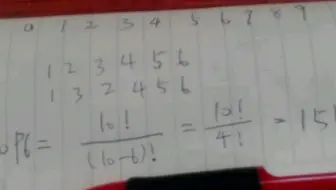 0 1 2 3 4 5 6 7 8 9
1 2 3 4 5 6
1 3 2 4 5 6
P6 = 10! / (10-6)! = 10! / 4! = 151